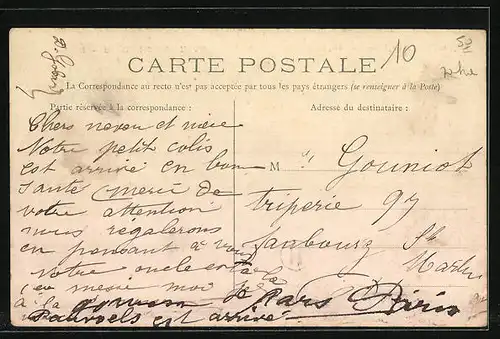 10
50
CARTE POSTALE
La Correspondance au recto n'est pas acceptée par tous les pays étrangers (se renseigner à la Poste)
Partie réservée à la correspondance :
Adresse du destinataire :
Chers neveu et nièce
Notre petit colis
est arrivé en bon
santé merci de
votre attention
nous régalerons
en pensant à vous
notre oncle
à la
est arrivé
M Gouniot
triperie 97
faubourg St
Martin
Paris